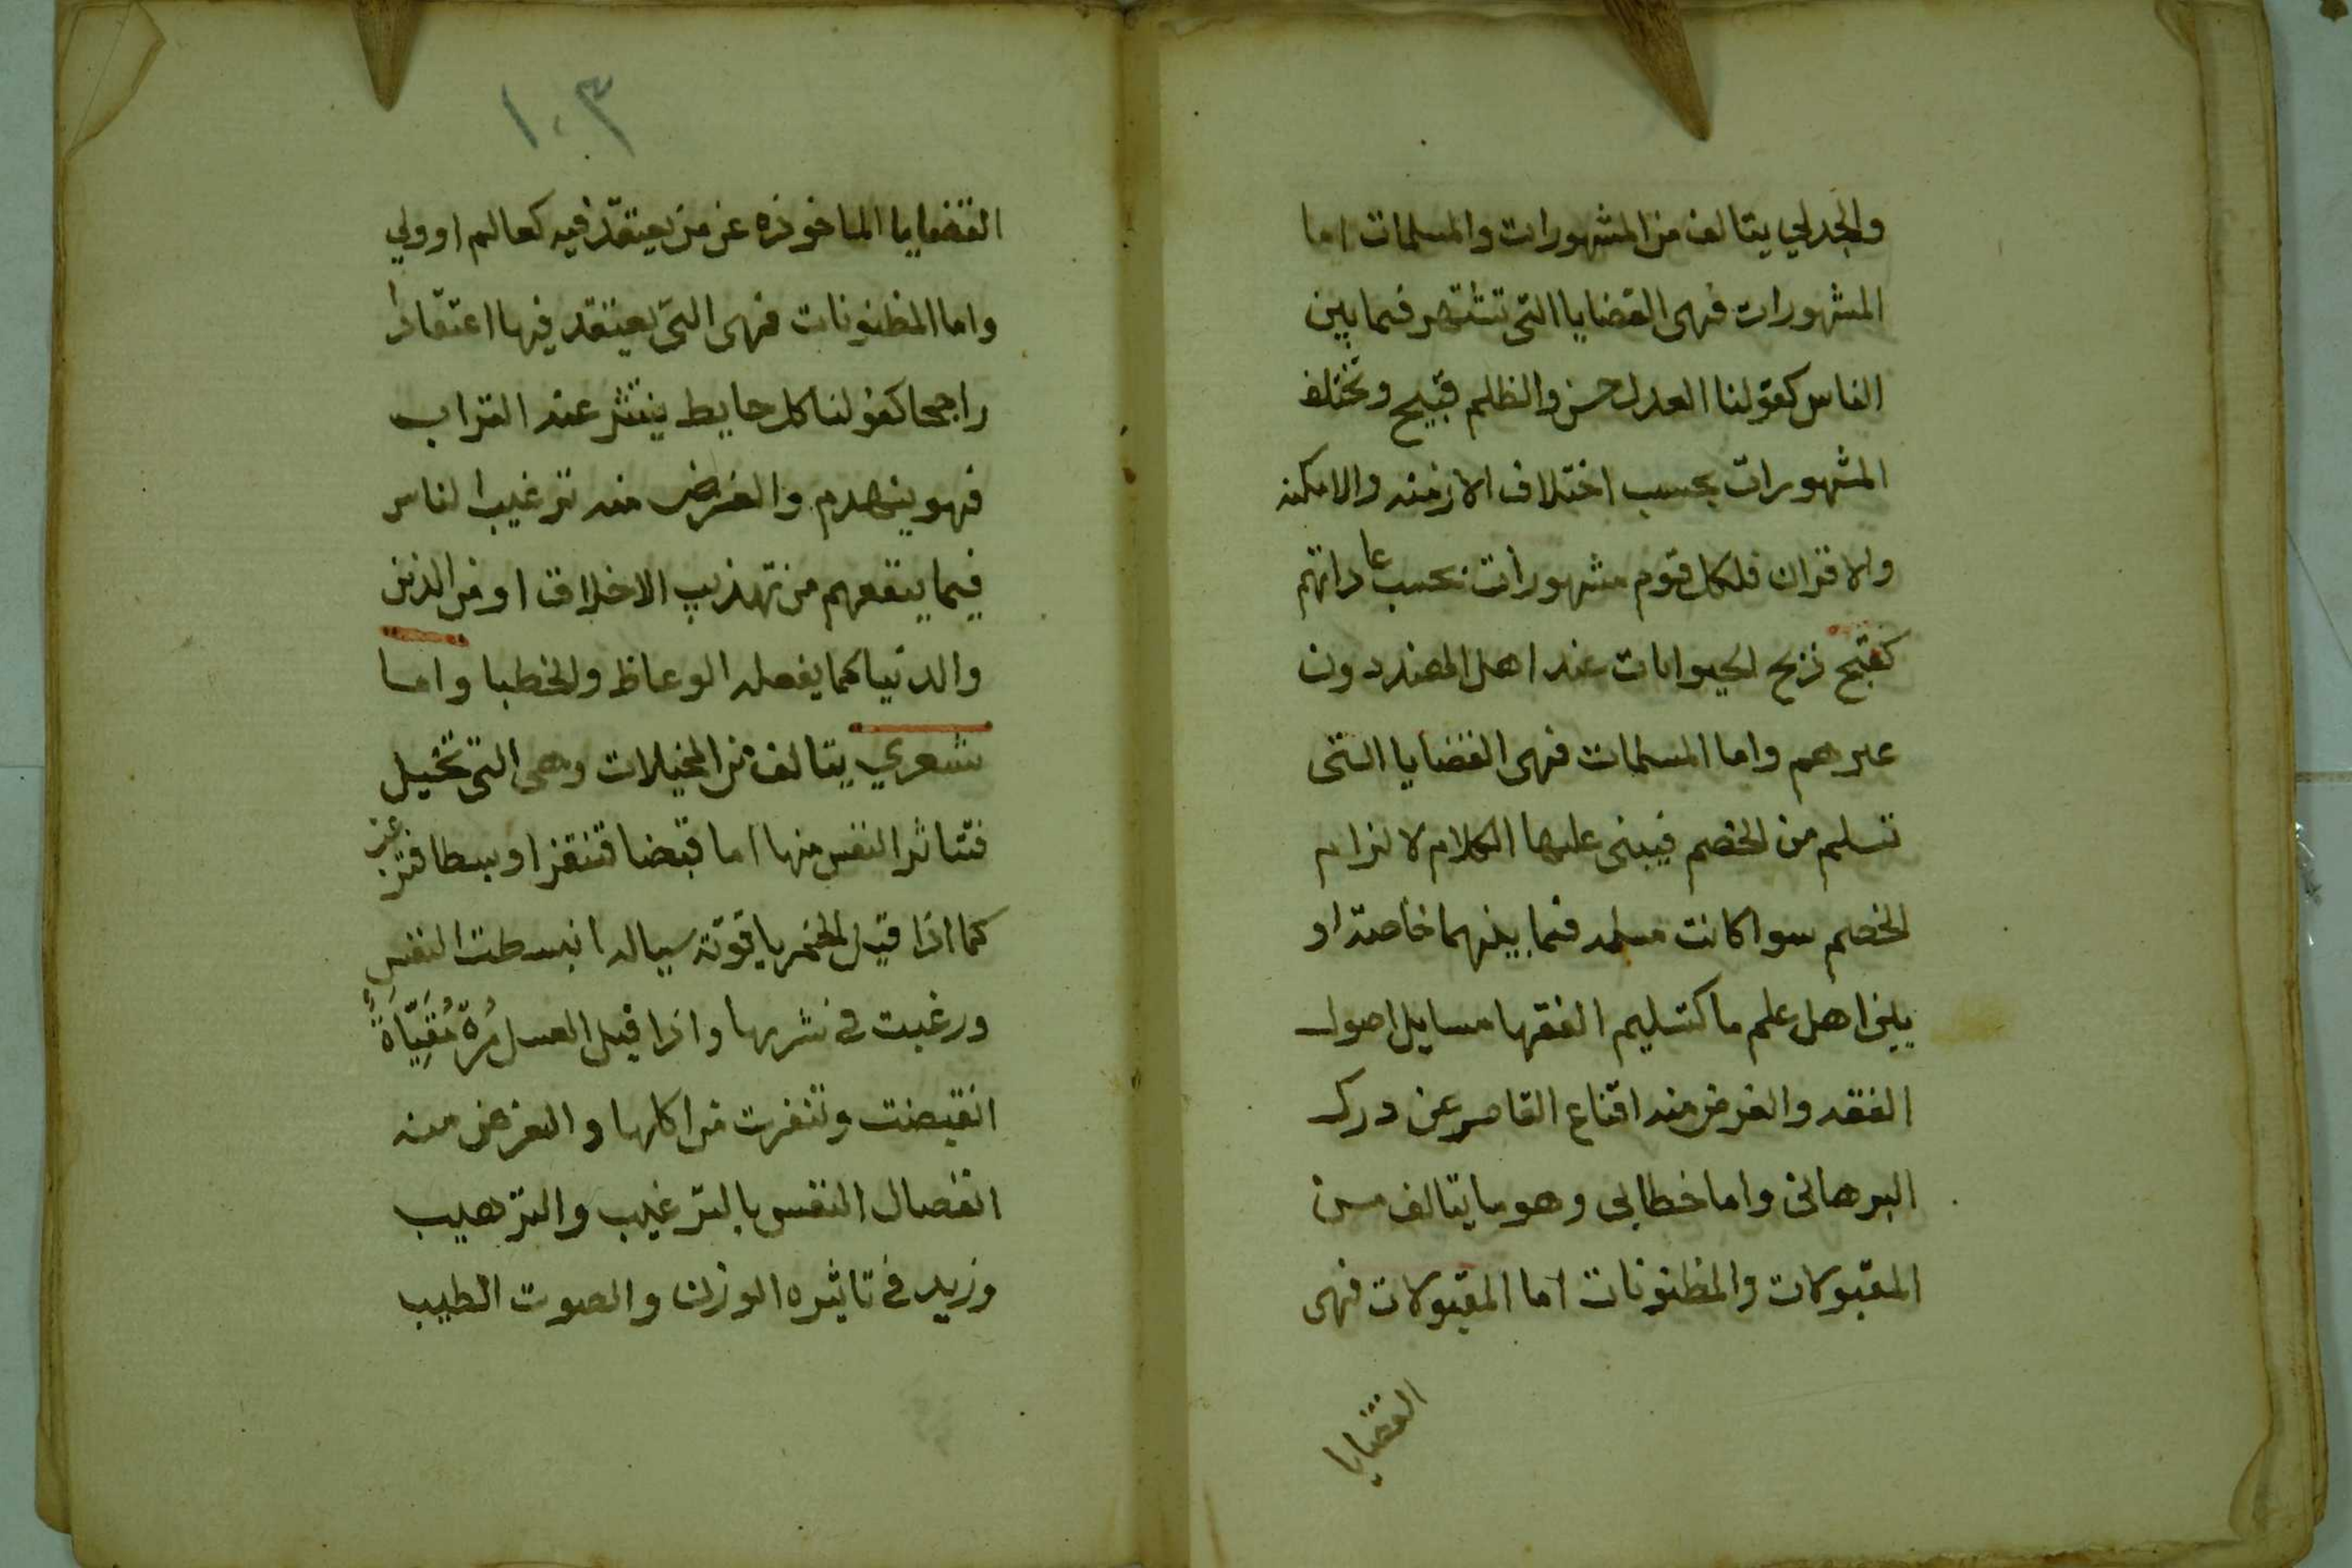 والجدلي يتالف من المشهورات والمسلمات اما
المشهورات فهى القضايا التى تشتهر فيما بين
الناس كقولنا العدل حسن والظلم قبيح وتختلف
المشهورات بحسب اختلاف الازمنه والامكنه
والاقران فلكل قوم مشهورات بحسب عاداتهم
كقبح ذبح الحيوانات عند اهل الهند دون
غيرهم واما المسلمات فهى القضايا التى
تسلم من الخصم فيبنى عليها الكلام لالزام
الخصم سوا كانت مسلمه فيما بينهما خاصة او
بين اهل علم ما كتسليم الفقها مسايل اصول
الفقه والغرض منه اقناع القاصر عن درك
البرهانى واما خطابى وهو ما يتالف من
المقبولات والمظنونات اما المقبولات فهى
القضايا
١٠٣
القضايا الماخوذه عن من يعتقد فيه كعالم او ولي
واما المظنونات فهى التى يعتقد فيها اعتقادا
راجحا كقولنا كل حايط ينتثر عنه التراب
فهو ينهدم والغرض منه ترغيب الناس
فيما ينفعهم من تهذيب الاخلاق او من الدين
والدنيا كما يفعله الوعاظ والخطبا واما
شعري يتالف من المخيلات وهى التى تخيل
فتتاثر النفس منها اما قبضا فتنفر او بسطا فترغب
كما اذا قيل الخمر ياقوتة سياله انبسطت النفس
ورغبت فى شربها واذا قيل العسل مُرة مُقَيِّاَةٌ
انقبضت وتنفرت من اكلها والغرض منه
انفصال النفس بالترغيب والترهيب
وزيد فى تاثيره الوزن والصوت الطيب